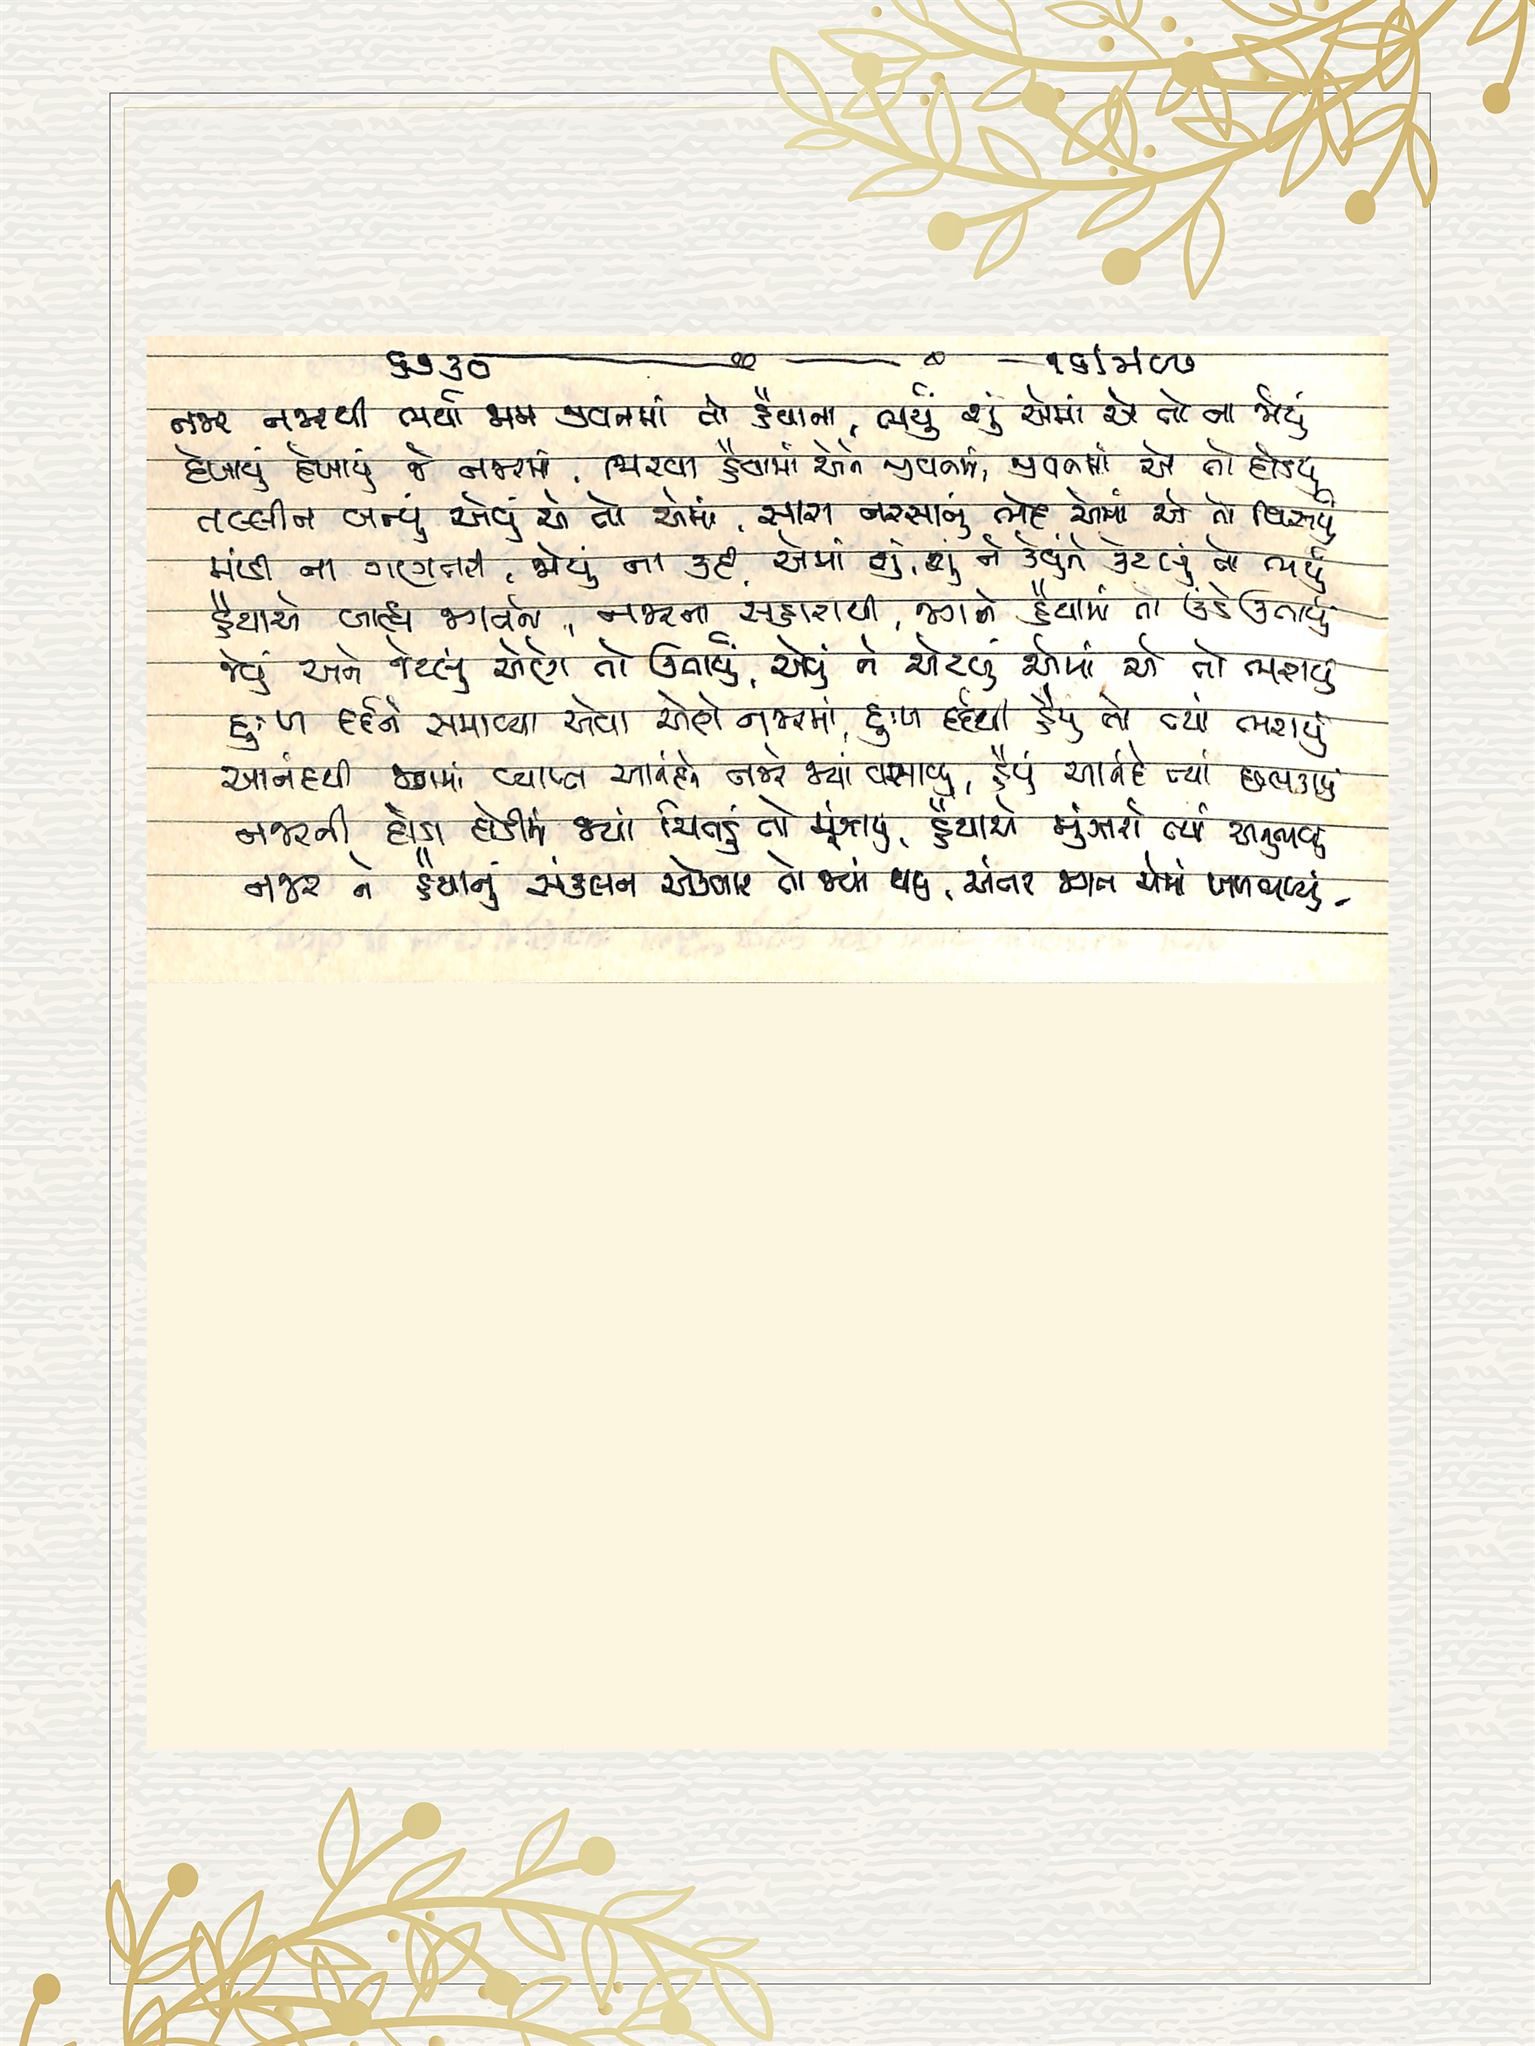 ૬૭૩૦ ૧૬/૫/૯૭
નજર નજરથી ભર્યા મમ જીવનમાં તો હૈયાના, ભર્યું શું એમાં એ તો ના જોયું
દેખાયું દેખાયું જે નજરમાં, ભરવા હૈયામાં એને જીવનમાં, જીવનમાં એ તો દોડયું
તલ્લીન બન્યું એવું એ તો એમાં, સારા નરસાનું ભેદ એમાં એ તો વિસર્યું
માંડી ના ગણતરી, જોયું ના કદી, એમાં શું, શું ને કેવુંને કેટલું તો ભર્યું
હૈયાએ બાહ્ય જગતને, નજરના સહારાથી, જગને હૈયામાં તો ઉંડે ઉતાર્યું
જેવું અને જેટલું એણે તો ઉતાર્યું, એવું ને એટલું એમાં એ તો ભરાયું
દુઃખ દર્દને સમાવ્યા એવા એણે નજરમાં, દુઃખ દર્દથી હૈયું તો ત્યાં ભરાયું
આનંદથી જગમાં વ્યાપ્ત આનંદને નજરે જ્યાં વસાવ્યું, હૈયું આનંદે ત્યાં છલકાયું
નજરની દોડા દોડીમાં જ્યાં ચિતડું તો મૂંઝાયું, હૈયાએ મુંઝારો ત્યાં અનુભવ્યું
નજર ને હૈયાનું સંકલન એકવાર તો જ્યાં થયું, અંતર જગત એમાં ખળભળ્યું.